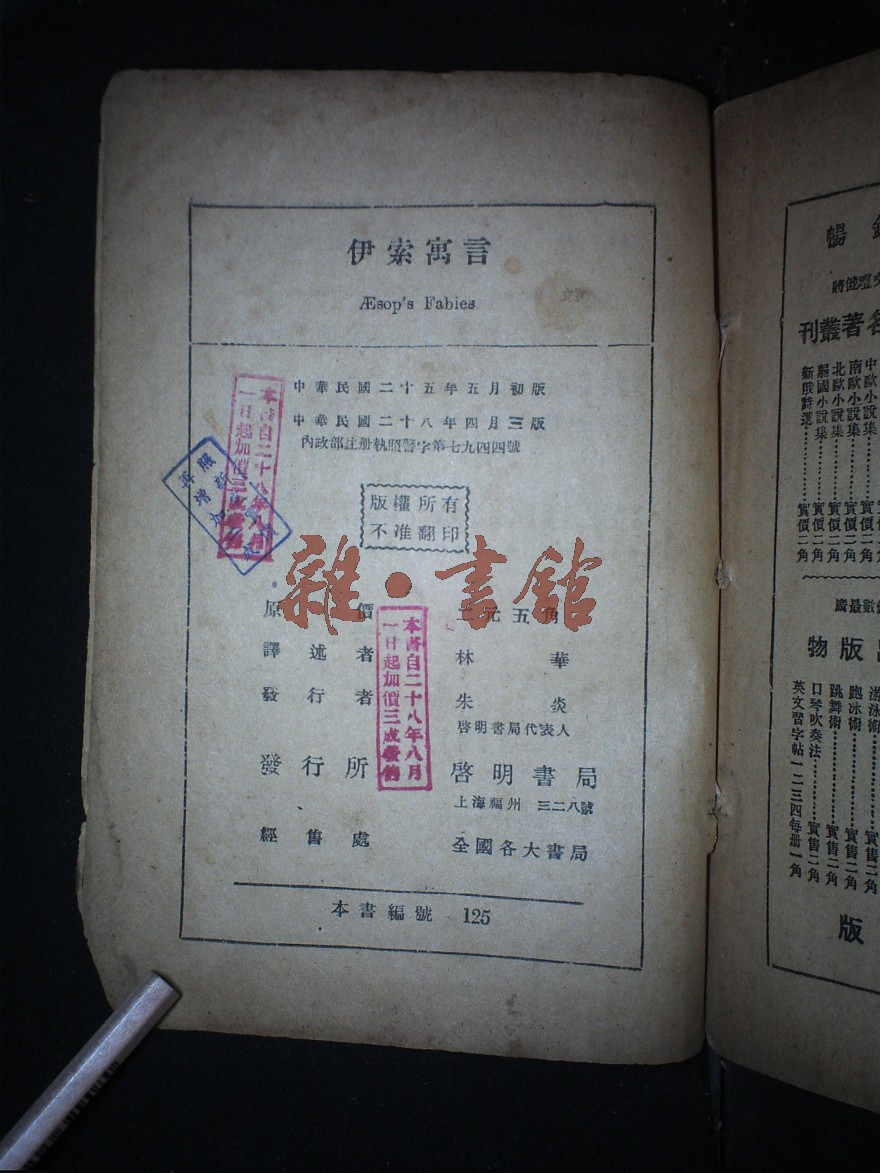 伊索寓言
Æsop's Fabies
中華民國二十五年五月初版
中華民國二十八年四月三版
內政部註册執照警字第七九四四號
版權所有
不准翻印
雜·書館
原價 二元五角
譯述者 林華
發行者 朱炎
啓明書局代表人
發行所 啓明書局
上海福州 三二八號
經售處 全國各大書局
本書編號 125
本書自二十八年八月
一日起加價三成發售
本書自二十八年八月
一日起加價三成發售
照
再增加
暢
名著叢刊
中歐小說集
南歐小說集………實價二角
北歐小說集………實價二角
弱國小說集………實價二角
新俄詩選…………實價二角
版物
游泳術
跑冰術……………實售二角
跳舞術……………實售二角
口琴吹奏法………實售二角
英文習字帖一二三四每册一角
版